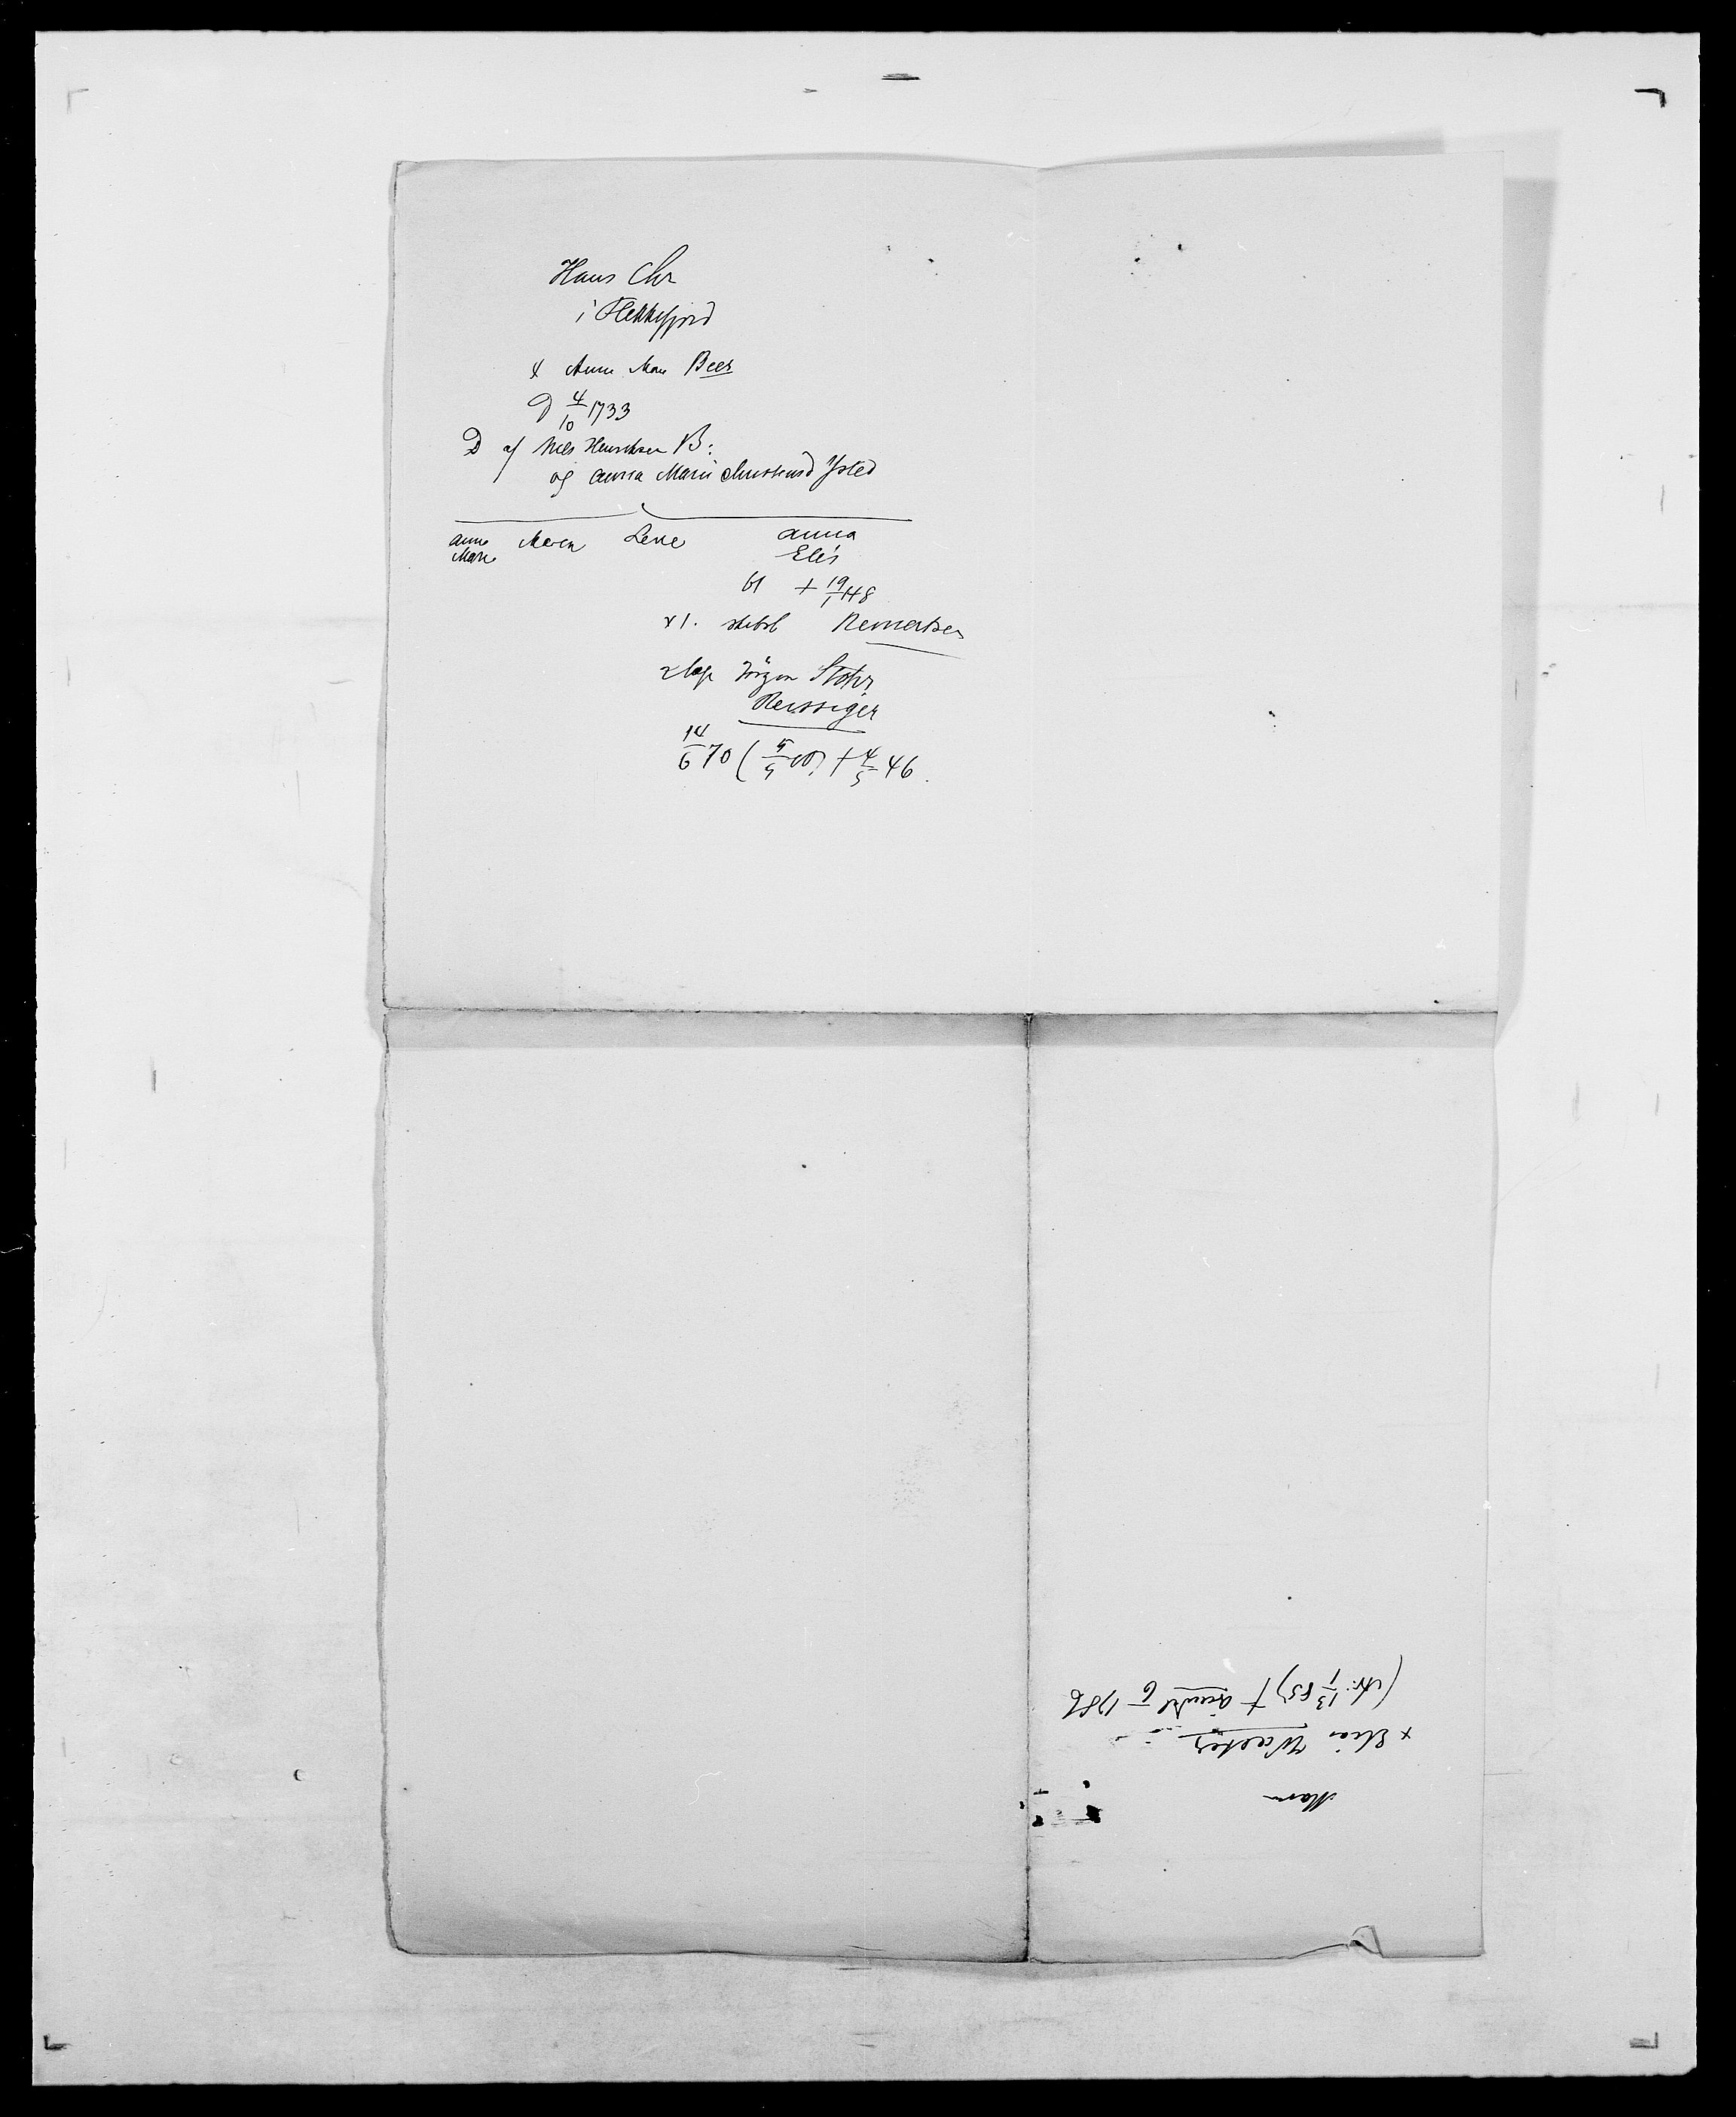 Hans Chr
i Flekkefjord
x Anne Mar Beer
D 4/10 1733
D af Niels Henrichsen B:
og Anna Marie Ysted
Anne Marie Maren Lene Anna Elis
61 + 19/1 48
x 1. skibsf Reinertsen
2 Jörgen Stöhr
Reissiger
14/6 70 + 4/5 46.
Maren
x Elias Walter
13/1 85) + 6 1786